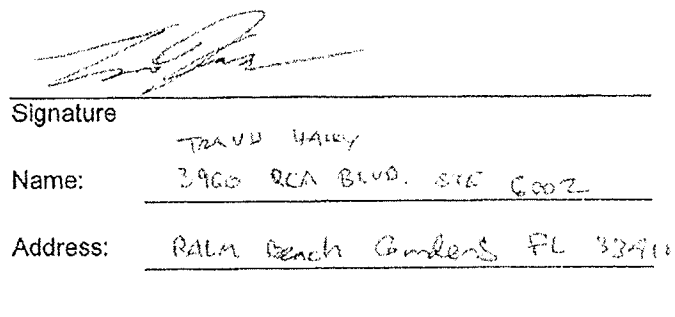 Signature
Name: 3960 RCA BLVD. STE 6002
Address: PALM Beach Gardens FL 33410